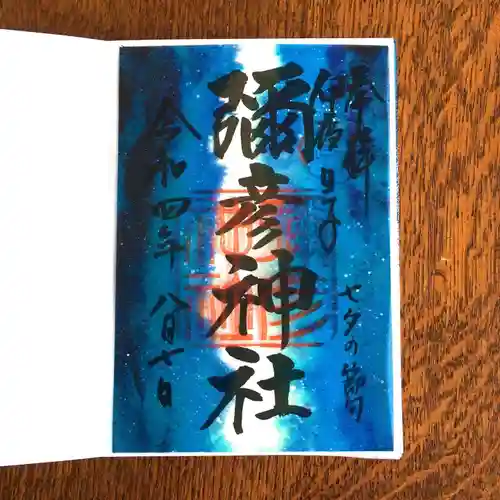 奉拝
伊夜日子
七夕の節句
彌彦神社
令和四年 八月七日